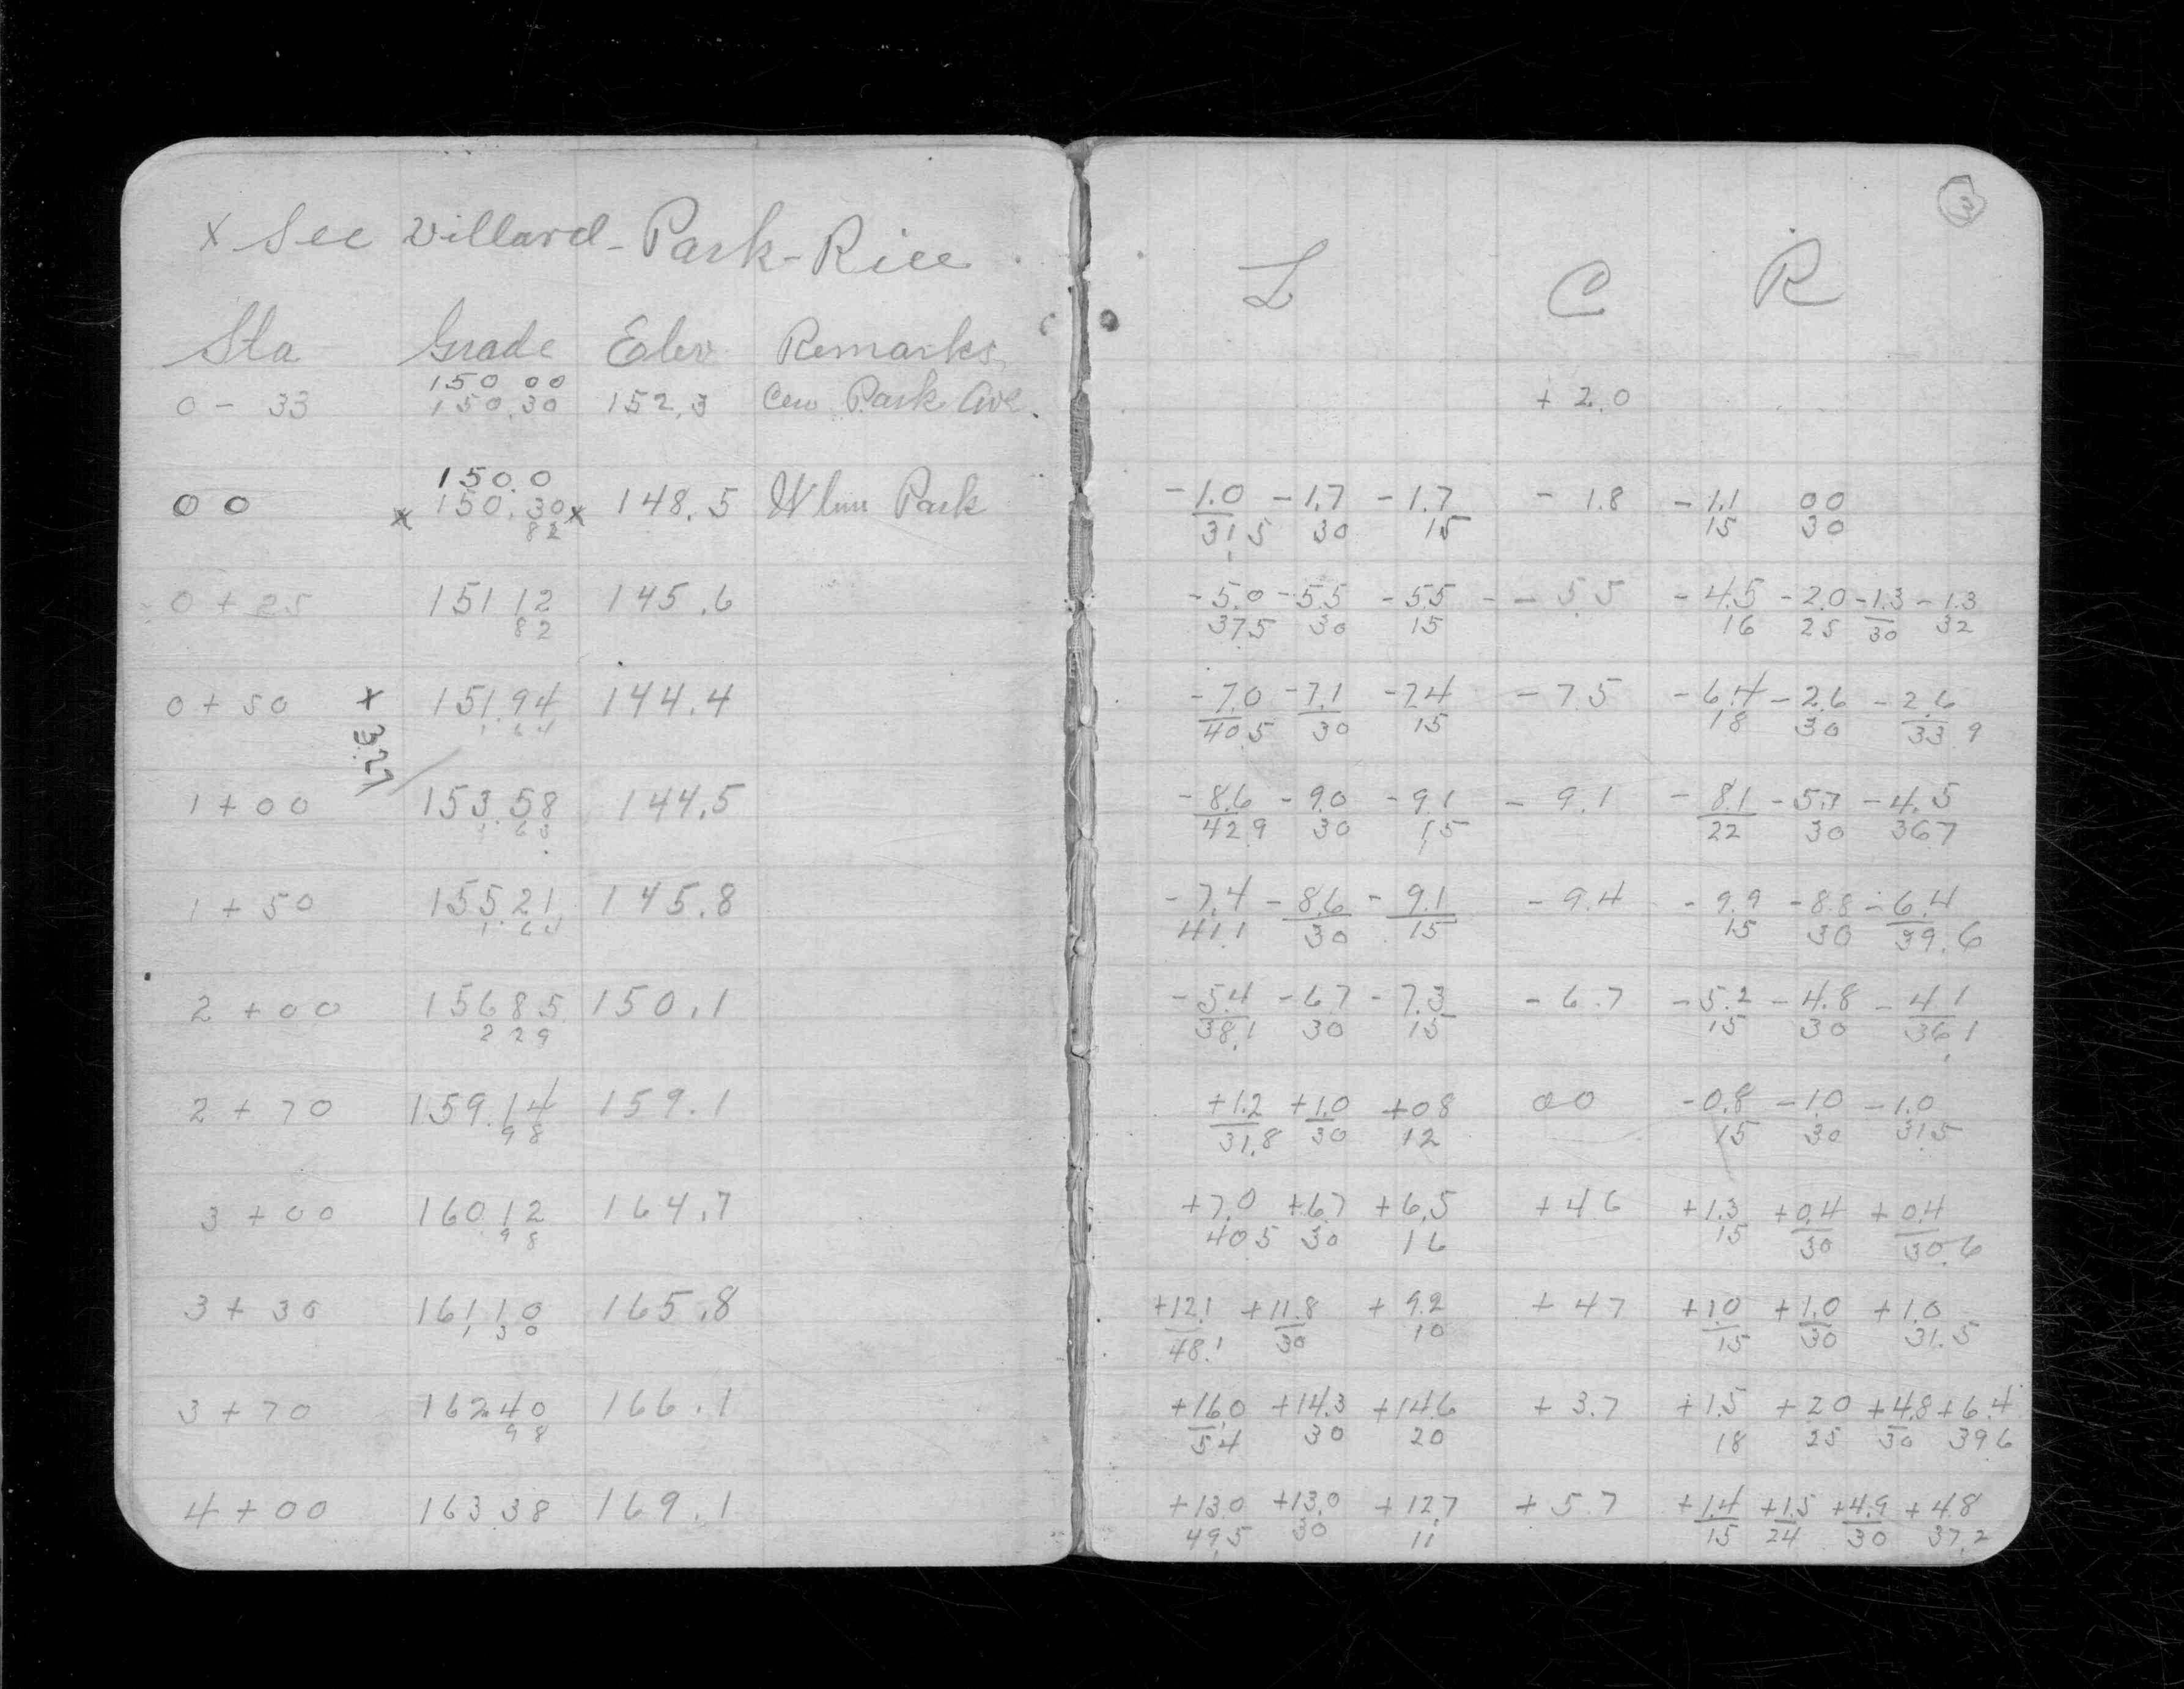 x See Willard - Park - Rice
Sta Grade Elev Remarks
150 00
0 - 33 150.30 152.3 Cen Park Ave.
150.0
00 x 150.30 x 148.5 W line Park
82
0 + 25 151 12 145.6
82
0 + 50 x 151.94 144.4
1.64
3.27
1 + 00 153.58 144.5
1.63
1 + 50 155.21 145.8
1.64
2 + 00 156 85 150.1
2 29
2 + 70 159.14 159.1
98
3 + 00 160 12 164.7
98
3 + 30 161 10 165.8
1 30
3 + 70 162.40 166.1
98
4 + 00 163 38 169.1
3
L C R
+ 2.0
- 1.0 - 1.7 - 1.7 - 1.8 - 1.1 00
31.5 30 15 15 30
- 5.0 - 5.5 - 5.5 - - 5.5 - 4.5 - 2.0 - 1.3 - 1.3
37.5 30 15 16 25 30 32
- 7.0 - 7.1 - 7.4 - 7.5 - 6.4 - 2.6 - 2.6
40.5 30 15 18 30 33 9
- 8.6 - 9.0 - 9.1 - 9.1 - 8.1 - 5.7 - 4.5
42 9 30 15 22 30 36 7
- 7.4 - 8.6 - 9.1 - 9.4 - 9.9 - 8.8 - 6.4
41.1 30 15 15 30 39.6
- 5.4 - 6 7 - 7.3 - 6.7 - 5.2 - 4.8 - 4 1
38.1 30 15 15 30 36.1
+ 1.2 + 1.0 + 0 8 00 - 0.8 - 1.0 - 1.0
31.8 30 12 15 30 31.5
+ 7.0 + 6.7 + 6.5 + 4 6 + 1.3 + 0.4 + 0.4
40 5 30 16 15 30 30.6
+ 12.1 + 11.8 + 9.2 + 4 7 + 1.0 + 1.0 + 1.0
48.1 30 10 15 30 31.5
+ 16.0 + 14.3 + 14.6 + 3.7 + 1.5 + 2 0 + 4.8 + 6.4
54 30 20 18 25 30 39 6
+ 13.0 + 13.0 + 12.7 + 5.7 + 1.4 + 1.5 + 4.9 + 4.8
49.5 30 11 15 24 30 37.2